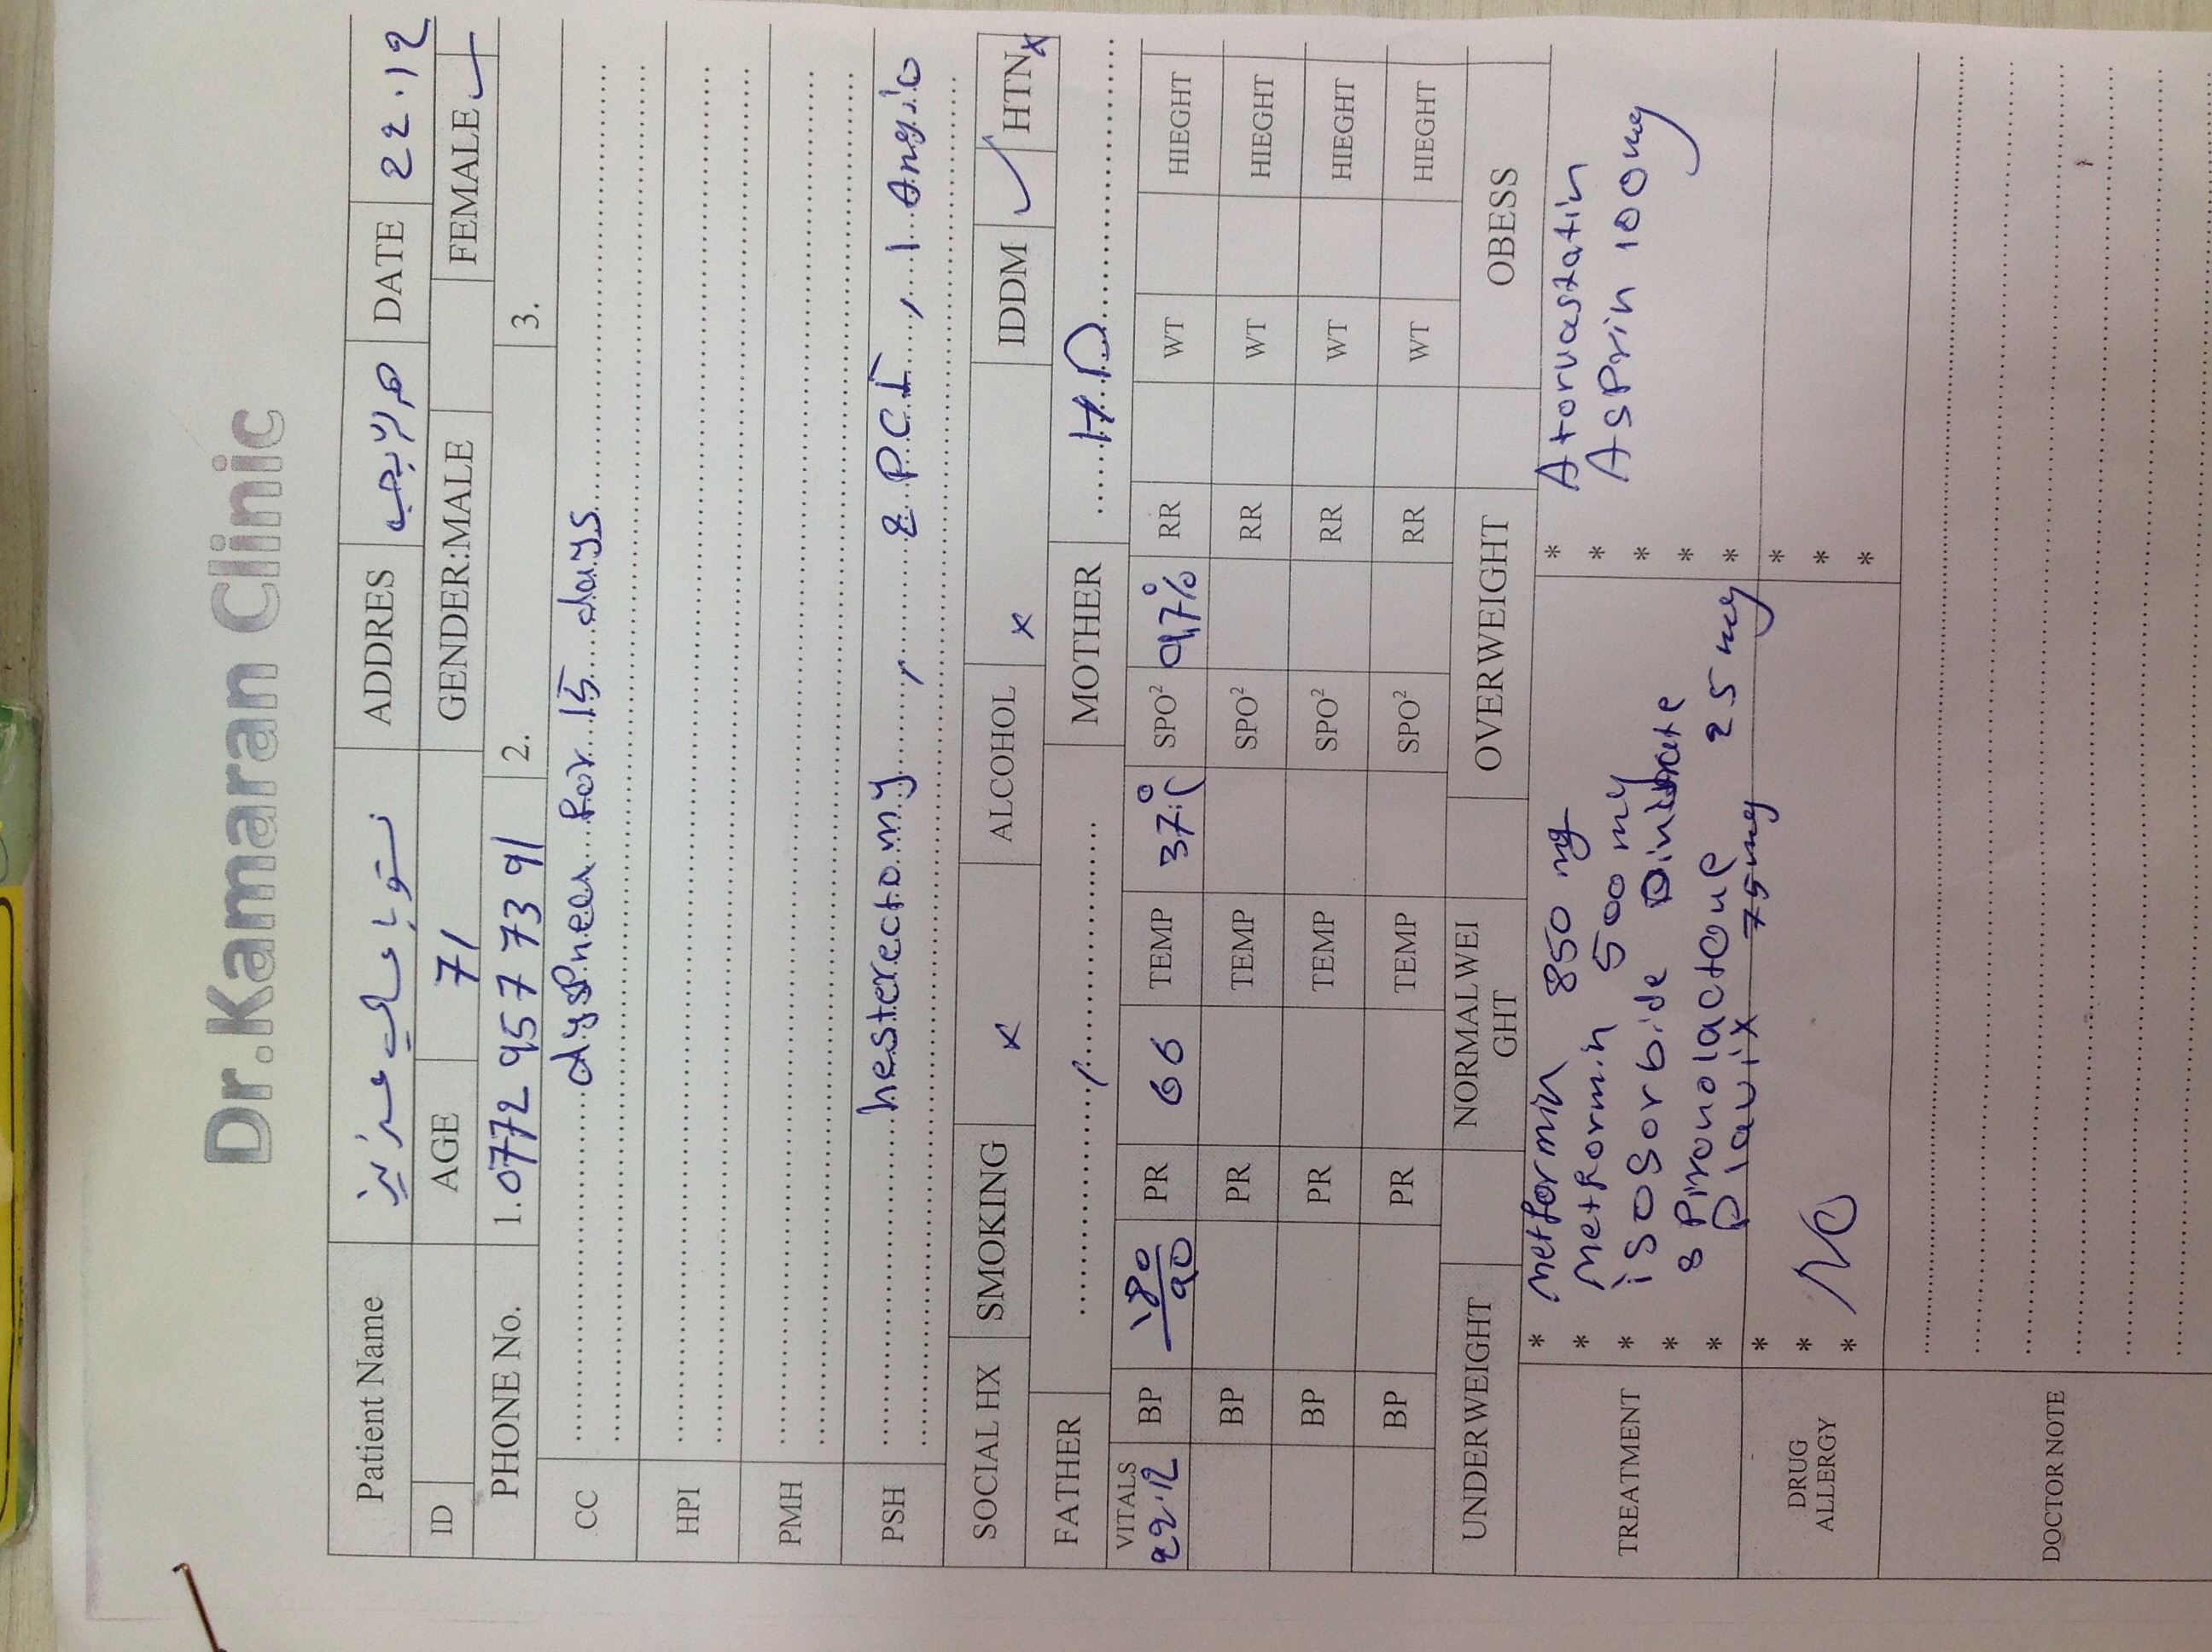 Dr.Kamaran Clinic
Patient Name عزيز ADDRES هەلابجە DATE 22.12
ID AGE 71 GENDER:MALE FEMALE ✓
PHONE No. 1.0772 957 73 91 2. 3.
CC dyspnea for 15 days
HPI
PMH
PSH hesterectomy , 2 P.C.I , 1 Angio
SOCIAL HX SMOKING x ALCOHOL x IDDM ✓ HTN x
FATHER / MOTHER H.D
VITALS 22.12 BP 180/90 PR 66 TEMP 37°C SPO² 97% RR WT HIEGHT
BP PR TEMP SPO² RR WT HIEGHT
BP PR TEMP SPO² RR WT HIEGHT
BP PR TEMP SPO² RR WT HIEGHT
UNDERWEIGHT NORMALWEIGHT OVERWEIGHT OBESS
TREATMENT * metformin 850 mg * Atorvastatin
* metformin 500 mg * Asprin 100mg
* isosorbide Dinitrate *
* spironolactone 25 mg *
* Plavix 75mg *
DRUG ALLERGY * *
* NO *
* *
DOCTOR NOTE